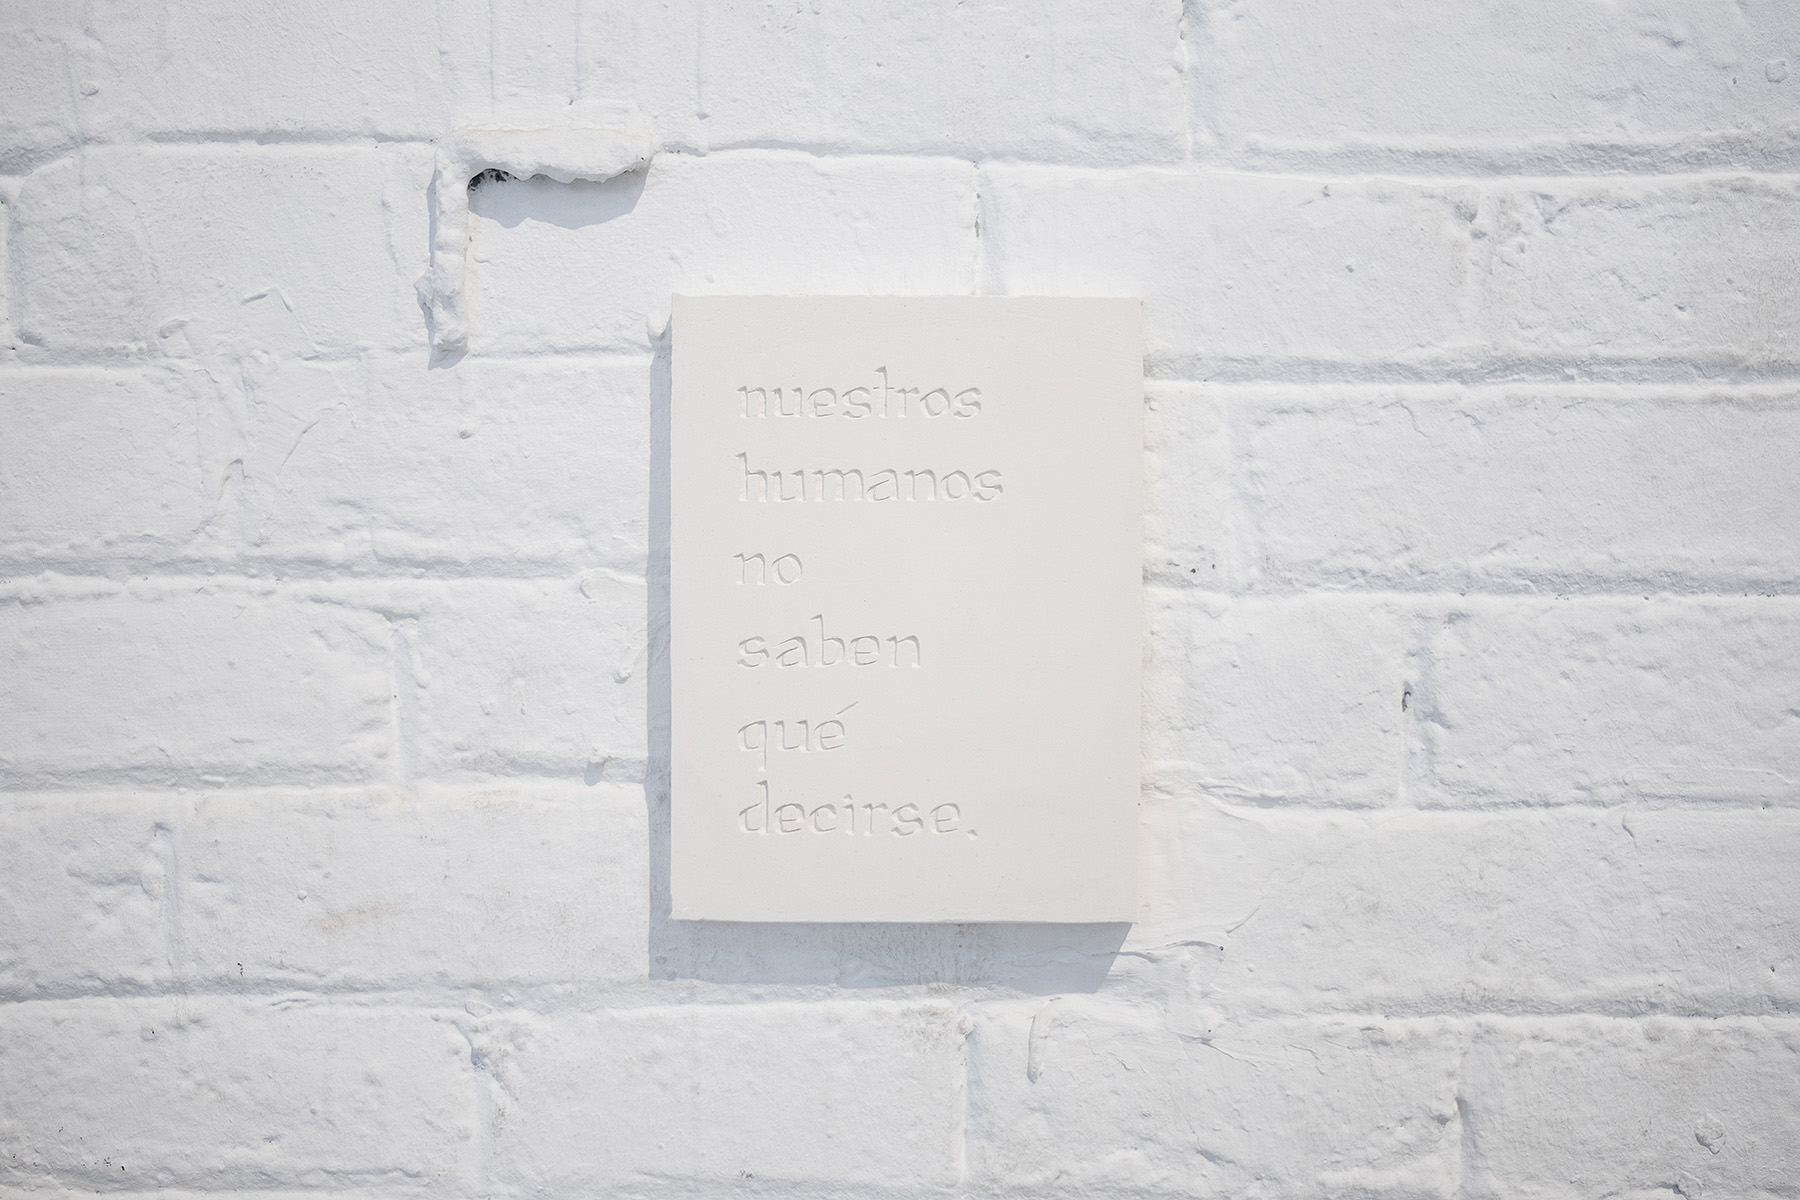 nuestros
humanos
no
saben
qué
decirse.